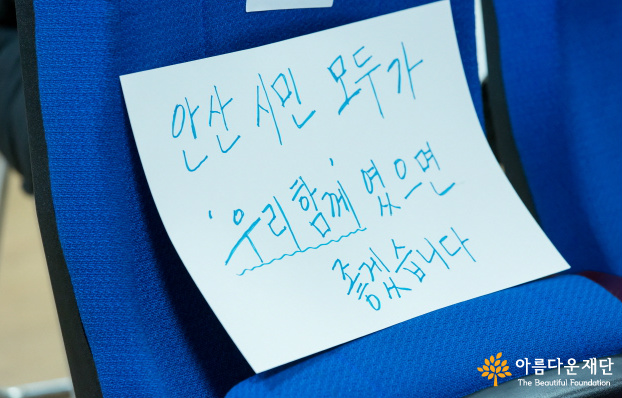 안산 시민 모두가
'우리함께' 였으면
좋겠습니다
아름다운재단
The Beautiful Foundation